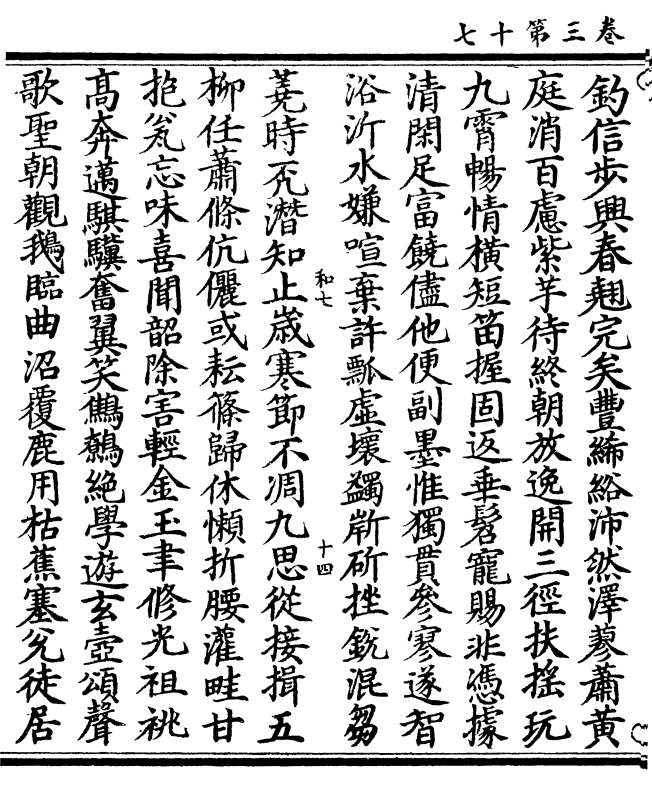 卷三第十七
釣信步興春翹完矣豐絺綌沛然澤蓼蕭黃
庭消百慮紫芋待終朝放逸開三徑扶搖玩
九霄暢情橫短笛握固返垂髫寵賜非憑據
清閑足富饒儘他便副墨惟獨貫參寥遂智
浴沂水嫌喧棄許瓢虛壞蠲斲斫挫銳混芻
和七
十四
蕘時潛知止歲寒節不凋九思從接揖五
柳任蕭條伉儷或耘蓧歸休懶折腰灌畦甘
抱瓮忘味喜聞韶除害輕金玉聿修光祖祧
高奔邁騏驥奮翼笑鷦鷯絕學遊玄壺頌聲
歌聖朝觀鵝臨曲沼覆鹿用枯蕉塞兌徒居